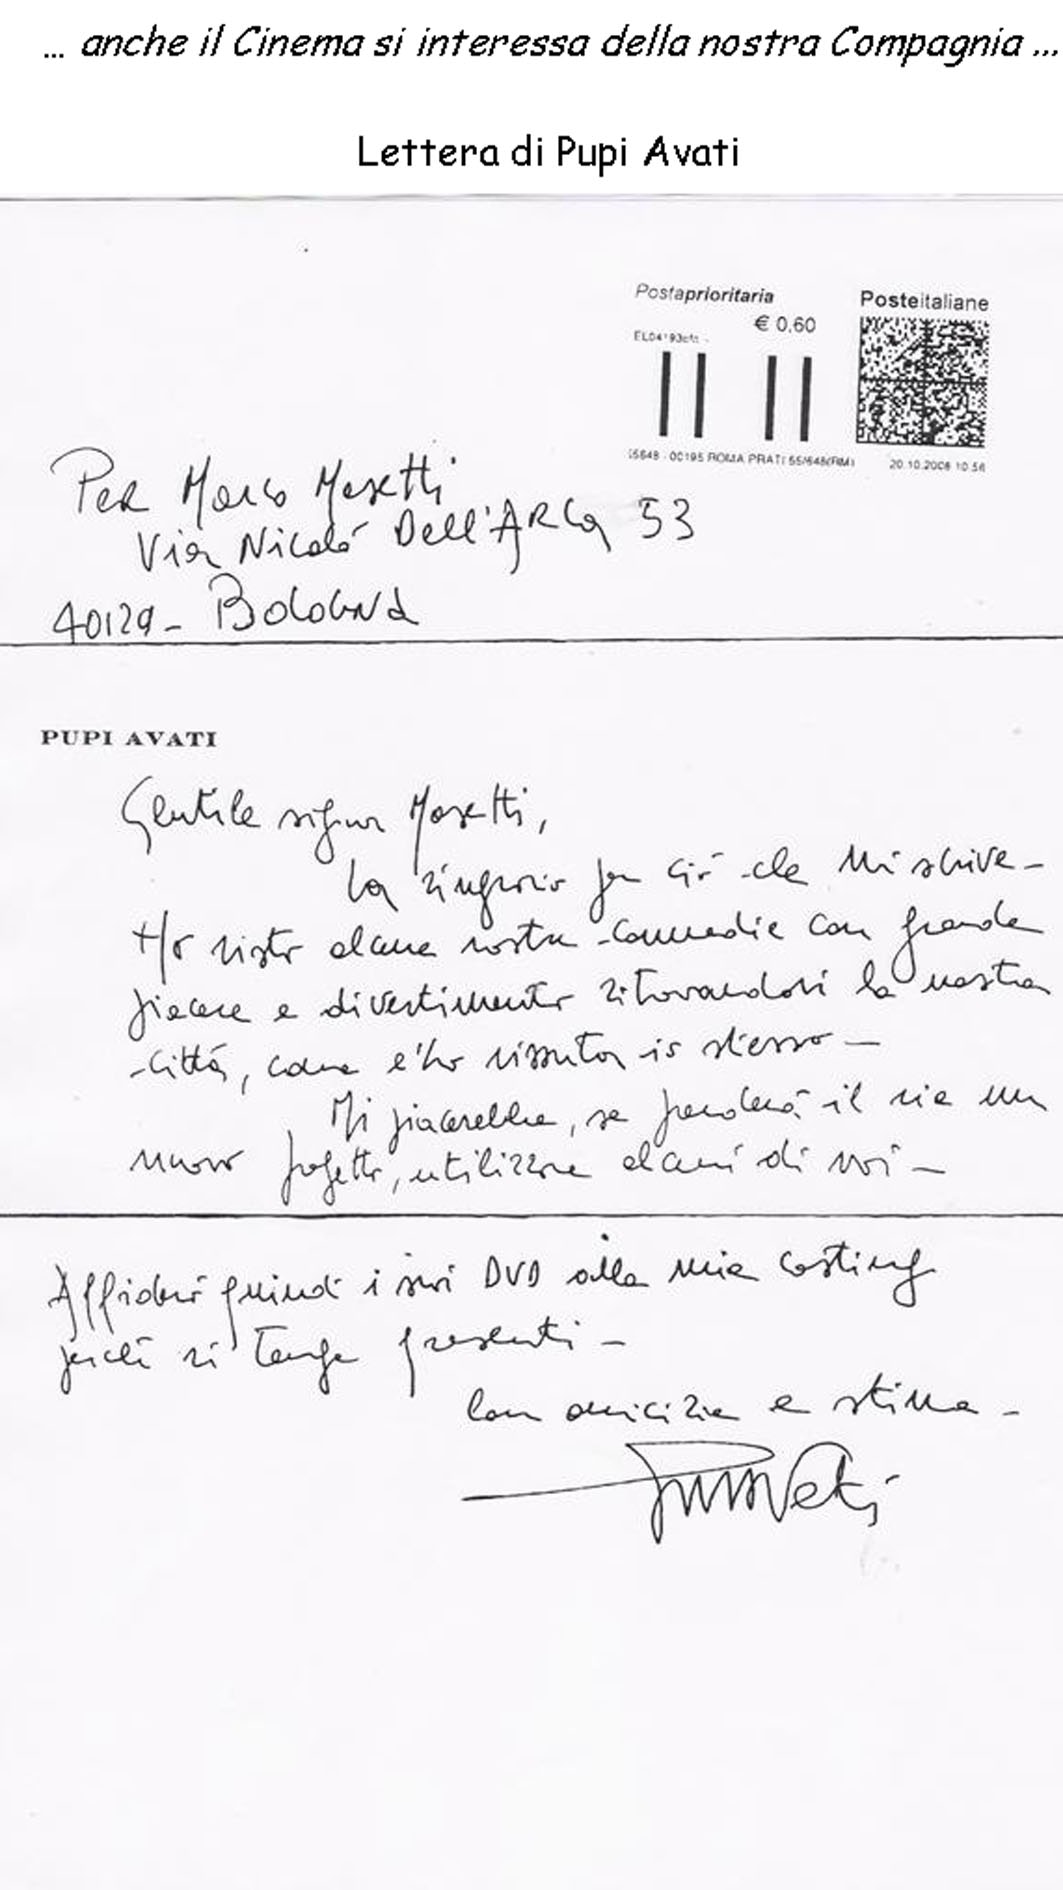 ... anche il Cinema si interessa della nostra Compagnia ...
Lettera di Pupi Avati
Postaprioritaria
Posteitaliane
€ 0,60
00195 ROMA PRATI 55/648(RM)
20.10.2008 10.56
Per Marco Masetti
Via Nicolò Dell'Arca 53
40129 - Bologna
PUPI AVATI
Gentile signor Masetti,
La ringrazio per ciò che mi scrive -
Ho visto alcune vostre commedie con grande
piacere e divertimento ritrovandovi la nostra
città, come l'ho vissuta io stesso -
Mi piacerebbe, se prenderà il via un
nuovo progetto, utilizzare alcuni di voi -
Affiderò quindi i suoi DVD alla mia casting
perché vi tenga presenti -
Con amicizia e stima -